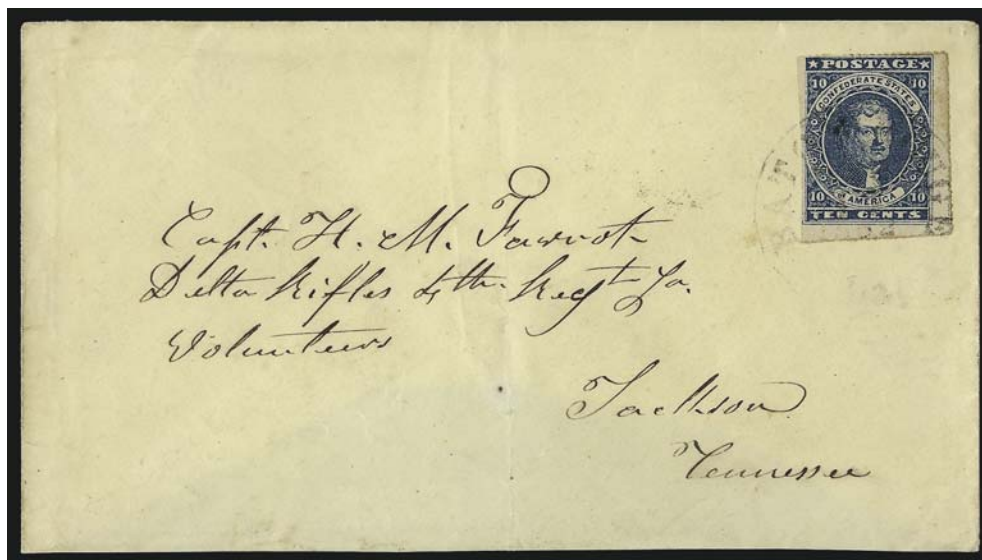 ★POSTAGE★
10 CONFEDERATE STATES 10
10 OF AMERICA 10
TEN CENTS
BATO
Capt. H. M. Favrot
Delta Rifles 4th Regt La.
Volunteers
Jackson
Tennessee